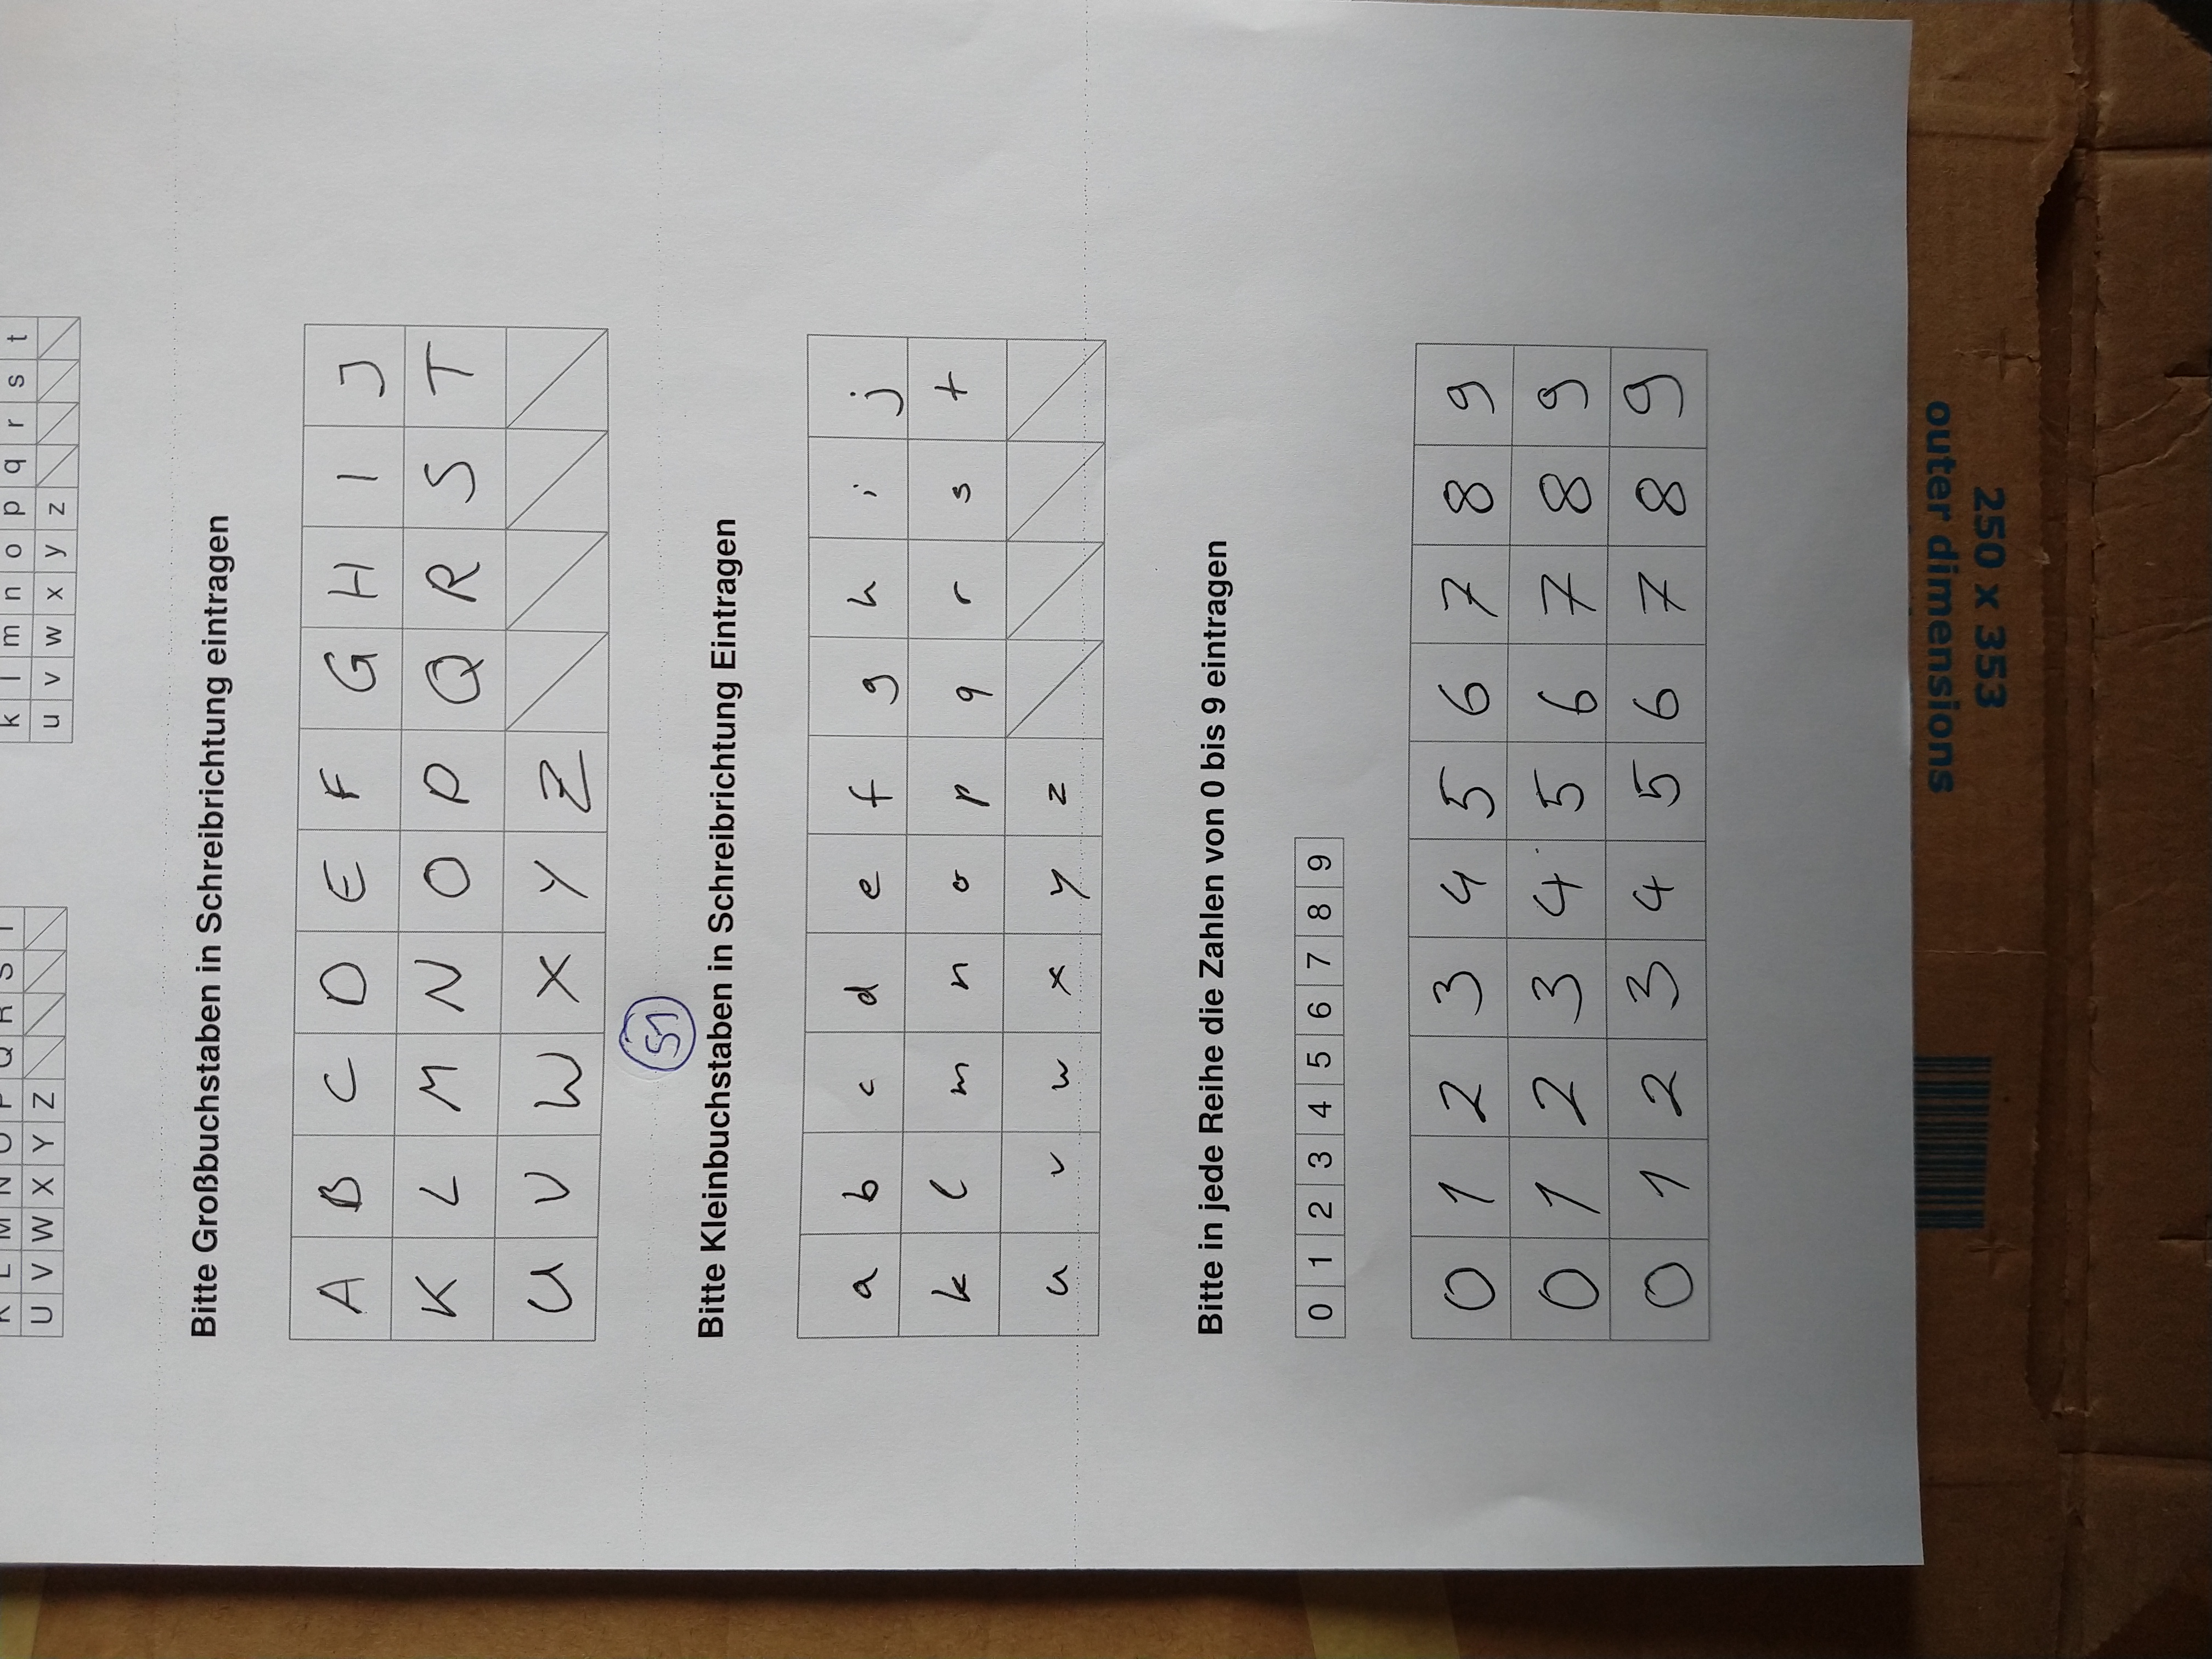 K L M N O P Q R S T
k l m n o p q r s t
U V W X Y Z
u v w x y z
Bitte Großbuchstaben in Schreibrichtung eintragen
A B C D E F G H I J
K L M N O P Q R S T
U V W X Y Z
51
Bitte Kleinbuchstaben in Schreibrichtung Eintragen
a b c d e f g h i j
k l m n o p q r s t
u v w x y z
Bitte in jede Reihe die Zahlen von 0 bis 9 eintragen
0 1 2 3 4 5 6 7 8 9
0 1 2 3 4 5 6 7 8 9
0 1 2 3 4 5 6 7 8 9
0 1 2 3 4 5 6 7 8 9
outer dimensions
250 x 353